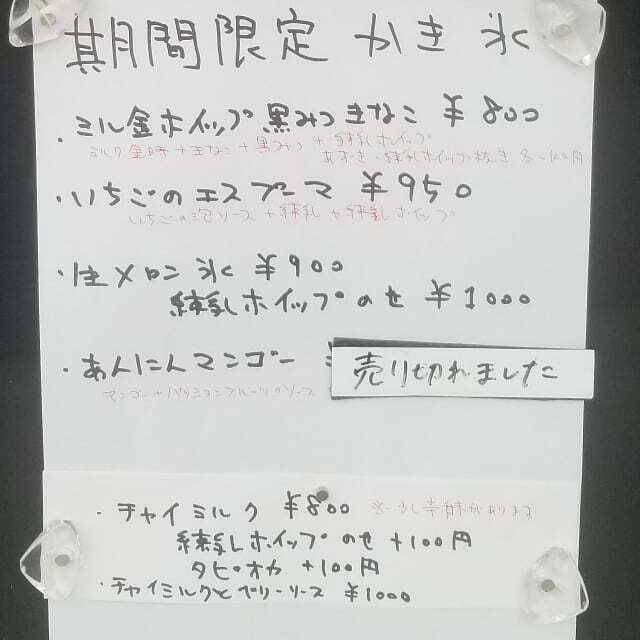 期間限定 かき氷
・ミル金ホイップ黒みつきなこ ¥800
ミルク金時+きなこ+黒みつ+練乳ホイップ
あずき・練乳ホイップ抜き 各-100円
・いちごのエスプーマ ¥950
いちごの泡ソース+練乳+練乳ホイップ
・生メロン氷 ¥900
練乳ホイップのせ ¥1000
・あんにんマンゴー
売り切れました
マンゴー+パッションフルーツのソース
・チャイミルク ¥800 ※少し辛味があります
練乳ホイップのせ +100円
タピオカ +100円
・チャイミルクとベリーソース ¥1000